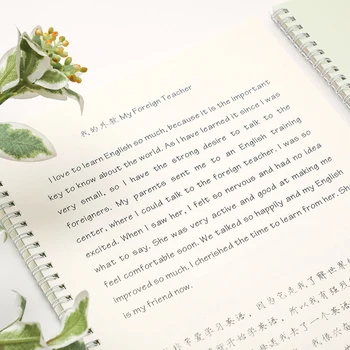 我的外教 My Foreign Teacher
I love to learn English so much, because it is the important
key to know about the world. As I have learned it since I was
very small, so I have the strong desire to talk to the
foreigners. My parents sent me to an English training
center, where I could talk to the foreign teacher. I was so
excited. When I saw her, I felt so nervous and had no idea
what to say. She was very active and good at making me
feel comfortable soon. We talked so happily and my English
improved so much. I cherished the time to learn from her. She
is my friend now.
我非常爱学习英语，因为它是我了解世界